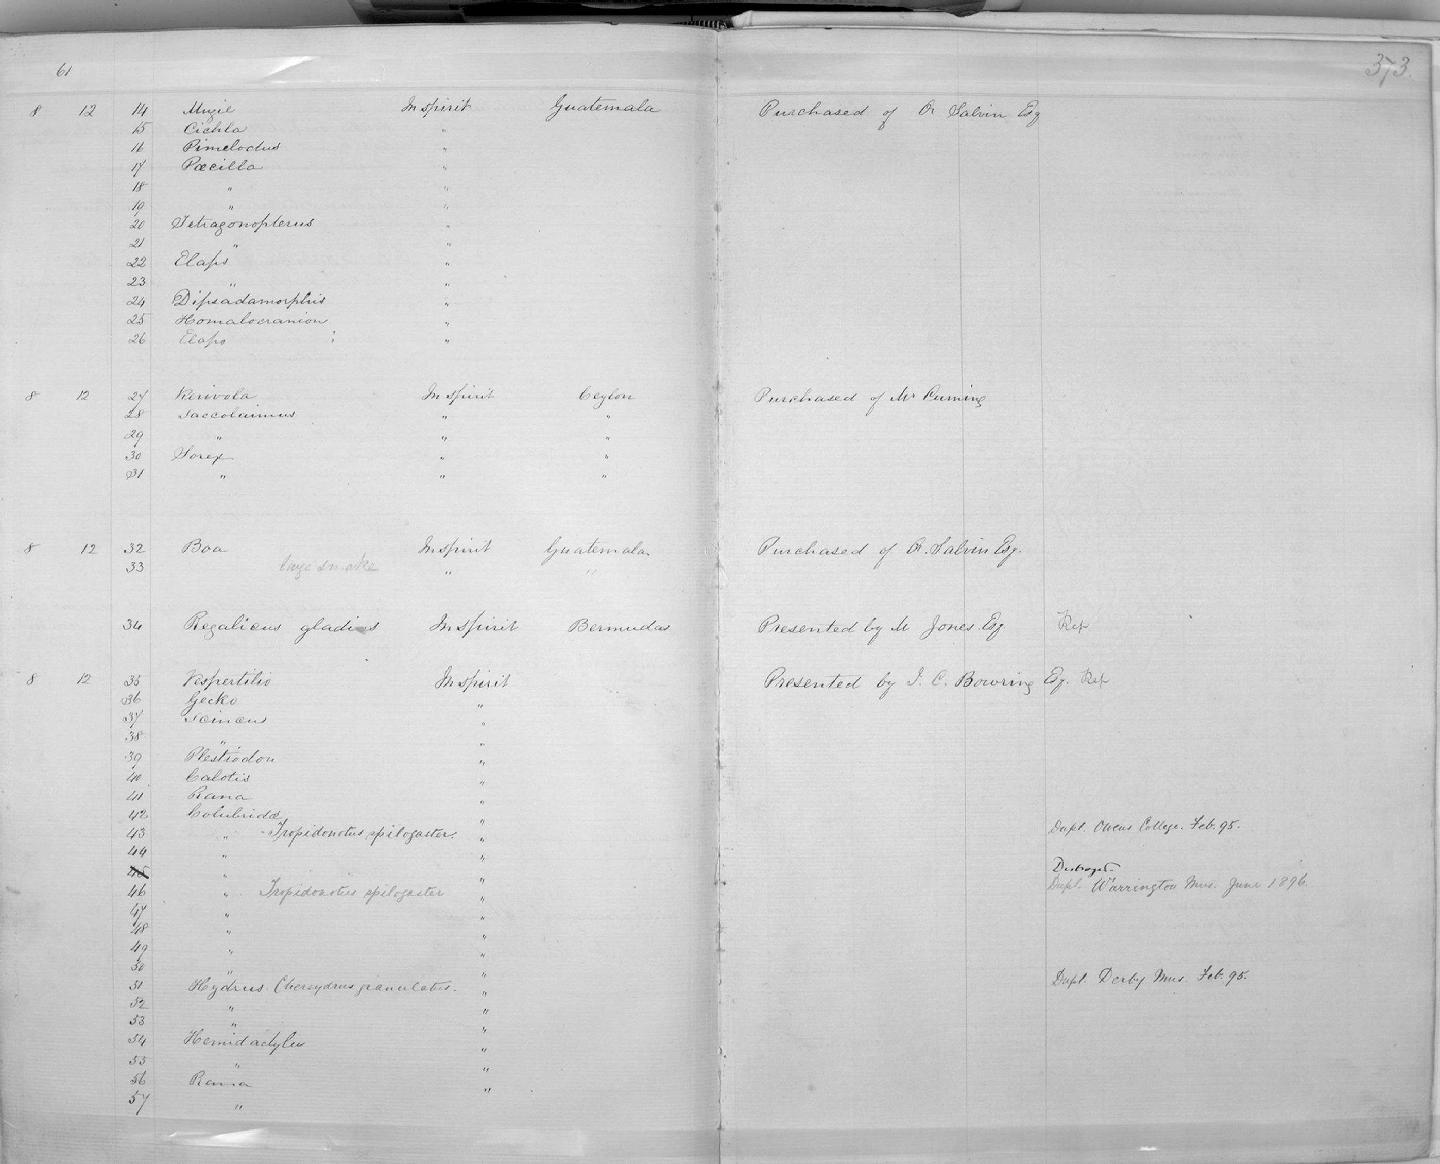 61 373.
8 12 14 Mugil In spirit Guatemala Purchased of O. Salvin Esq
15 Cichla "
16 Pimelodus "
17 Pœcilla "
18 " "
19 " "
20 Tetragonopterus "
21 " "
22 Elaps "
23 " "
24 Dipsadamorphis "
25 Homalocranion "
26 Elaps "
8 12 27 Kirivola In spirit Ceylon Purchased of Mr Cuming
28 Saccolaimus " "
29 " " "
30 Sorex " "
31 " " "
8 12 32 Boa In spirit Guatemala Purchased of O. Salvin Esq.
33 large snake " "
34 Regalicus gladius In spirit Bermudas Presented by M Jones Esq
8 12 35 Vespertilio In spirit Presented by J. C. Bowring Esq.
36 Gecko "
37 Scincus "
38 " "
39 Plestiodon "
40 Calotis "
41 Rana "
42 Colubridæ "
43 " Tropidonotus spilogaster. " Dupl. Owens College. Feb. 95.
44 " "
45 " " Destroyed.
46 " Tropidonotus spilogaster " Dupl. Warrington Mus. June 1896.
47 " "
48 " "
49 " "
50 " "
51 Hydrus. Chersydrus granulatus. " Dupl. Derby Mus. Feb. 95.
52 " "
53 " "
54 Hemidactylus "
55 " "
56 Rana "
57 "